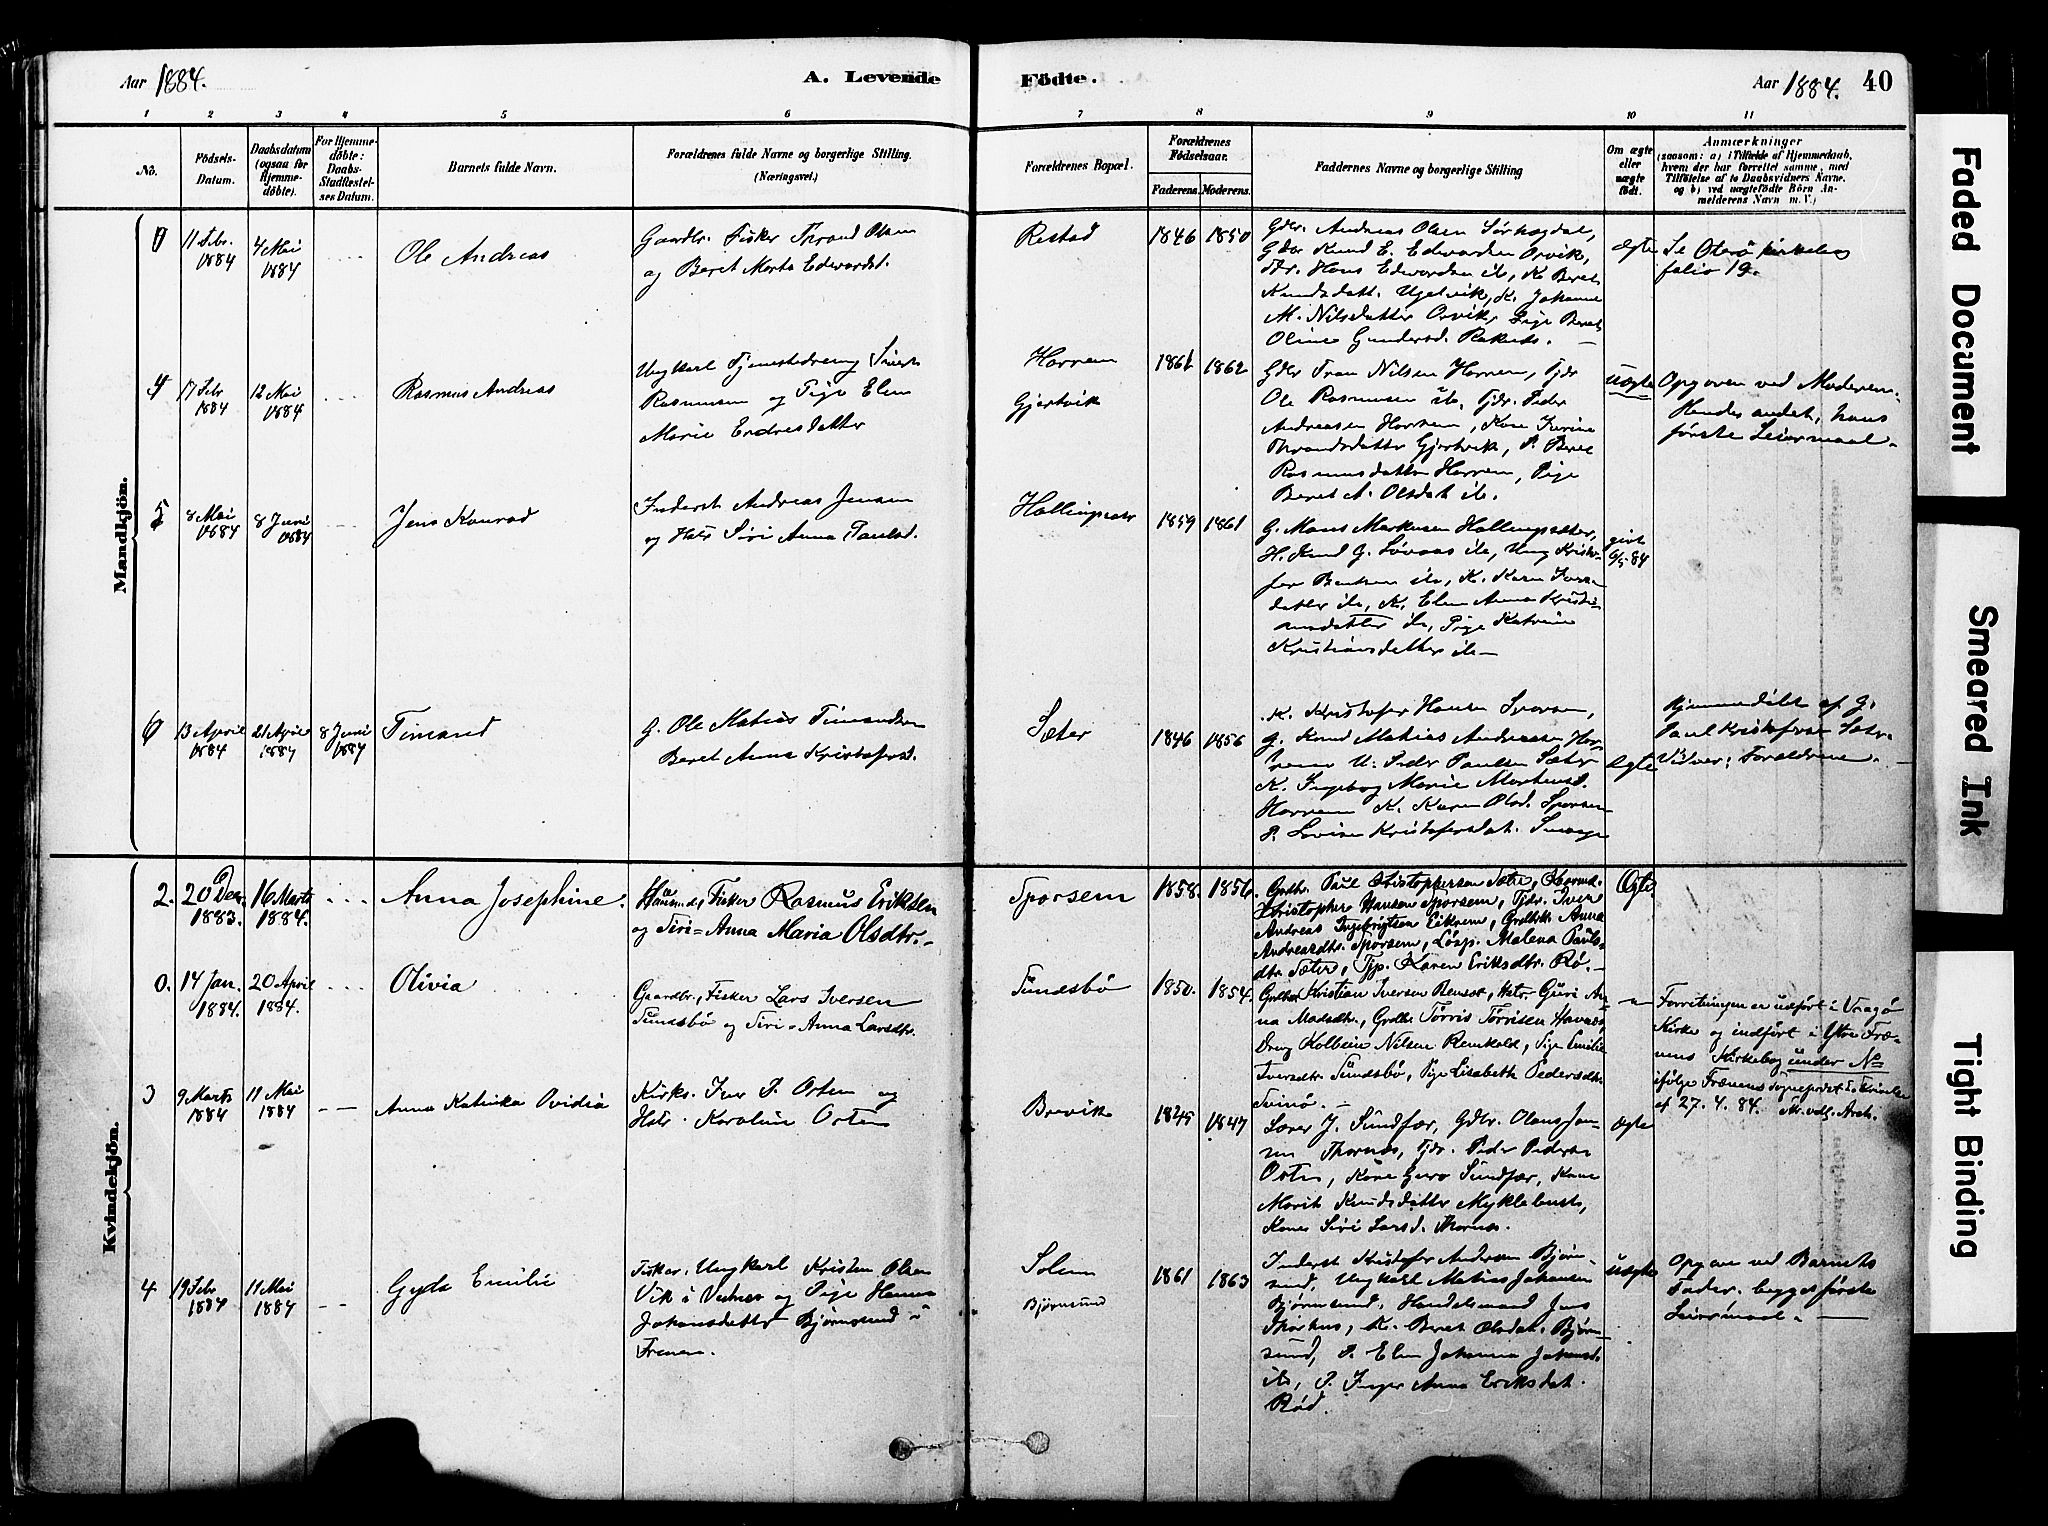 Aar 1884.
A. Levende
Födte.
Aar 1884.
40
1 2 3 4 5 6 7 8 9 10 11
No.
Födsels-Datum.
Daabsdatum (ogsaa for Hjemme-döbte).
For Hjemme-döbte: Daabs-Stadfæstel-ses Datum.
Barnets fulde Navn.
Forældrenes fulde Navne og borgerlige Stilling. (Næringsvei.)
Forældrenes Bopæl.
Forældrenes Födselsaar.
Faderens. Moderens.
Faddernes Navne og borgerlige Stilling
Om ægte eller uægte födt.
Anmærkninger
(saasom: a) i Tilfælde af Hjemmedaab,
hvem der har forrettet samme, med
Tilföielse af to Daabsvidners Navne,
og b) ved uægtefödte Börn An-
melderens Navn m. V.)
Mandkjön.
0
11 Febr. 1884
4 Mai 1884
Ole Andreas
Gaardbr. Fisker Thrond Olsen
og Beret Marta Edwardsd.
Restad
1846 1850
Gdbr. Andreas Olsen
Gdbr Knud E. Edwardsen Orvik,
Hans Edwardsen ib, K. Beret
Knudsdatt. Ugelvik, K. Johanne
M. Nilsdatter Orvik, Pige Beret
Oline Gundersd.
ægte
Se Oterö kirkebog
folio 19.
4
17 Febr 1884
12 Mai 1884
Rasmus Andreas
Ungkarl Tjenestedreng
Rasmussen og Pige Elen
Marie Endresdatter
Harrem
Gjertvik
1861 1862
Gdbr Nilsen Harrem, Tjdr
Ole Rasmussen ib, Tjdr. Peder
Andreassen Harrem, Kone
Throndsdatter Gjertvik, P. Beret
Rasmusdatter Harrem, Pige
Beret A. Olsdat ib.
uægte
Opgaven ved Moderen.
Hendes andet, hans
første Leiermaal.
5
8 Mai 1884
8 Juni 1884
Jens Konrad
Inderst Andreas Jensen
og Hstr Siri Anna Paulsd.
Hallingsetr
1859 1861
G. Mons Markusen Hallingsæter,
H. Knud G. Løvaas ib, Ung. Kristo-
fer Bentsen ib, K. Karen
datter ib, K. Elen Anna Kristi-
ansdatter ib, Pige Katrine
Kristiansdatter ib
givt
6/5-84
6
13 April 1884
21 April 1884
8 Juni 1884
Timand
G. Ole Matias Timandsen
Beret Anna Kristofersd.
Sæter
1846 1856
K. Kristofer Hansen
G. Knud Mathias Andreassen Har-
rem U. Peder Paulsen Sæter
K. Ingebor Marie Mortensd.
Harrem K. Karen Olsd. Sporsem
P. Lovise Kristofersdat.
Ægte
Hjemmedøbt af G.
Paul Kristofersen Sætr.
Vidner: Forældrene.
Kvindekjön.
2.
20 Dec. 1883.
16 Marts 1884.
Anna Josephine.
Husmd., Fisker Rasmus Eriksen
og Siri-Anna Maria Olsdtr.
Sporsem
1858. 1856.
Grdbr. Paul Christophersen Sæter,
Christopher Hansen Sporsem, Tjdr. Iver
Andreas Ingebrigtsen Eikrem, Anna
Andreasdtr. Sporsem, Løsp. Malena Pauls-
dtr. Sæter, Tjp. Karen Eriksdtr. Rø.
Ægte
0.
14 Jan. 1884.
20 April 1884.
Olivia
Gaardbr., Fisker Lars Iversen
Sundsbö og Siri-Anna Larsdtr.
Sundsbö
1850. 1854.
Grdbr Kristian Iversen, Hstr. Guri An-
na Madsdtr., Grdbr. Torris Torrisen
Dreng Kolbein Nilsen, Pige Emilie
Iversdtr. Sundsbö, Pige Lisabeth Pedersdtr.
Forretningen er udført i
Kirke og indført i Ytre Fræ-
nens Kirkebog under No
ifølge Frænens
af 27. 4. 84.
3
9 Marts 1884
11 Mai 1884
Anna Katinka Ovidia
Kirks. Iver P. Orten og
Hstr. Karoline Orten
Brevik
1845 1847
Lærer J. Sundfær, Gdbr. Olaus Jan-
sen Thornes, Tjdr. Peder Pedersen
Orten, Kone Guro Sundfær, Kone
Marit Knudsdatter Myklebust,
Kone Siri Larsd. Thornes.
ægte
4
19 Febr 1884
11 Mai 1884
Gyda Emilie
Fisker, Ungkarl Kristen Olsen
Vik i Vestnes og Pige Hanna
Johansdatter Bjørnsund i
Frænen.
Solem
Bjørnsund
1861 1863
Inderst Kristofer Andersen Bjørn-
sund, Ungkarl Matias Johansen
Bjørnsund, Handelsmand Jens
K. Beret Olsdat. Bjørn-
sund, P. Elen Johanna Johansd.
ib, P. Inger Anna Eriksdat.
Rød.
uægte
Opgave ved Barnets
Fader. begges første
Leiermaal.
Faded Document
Smeared Ink
Tight Binding